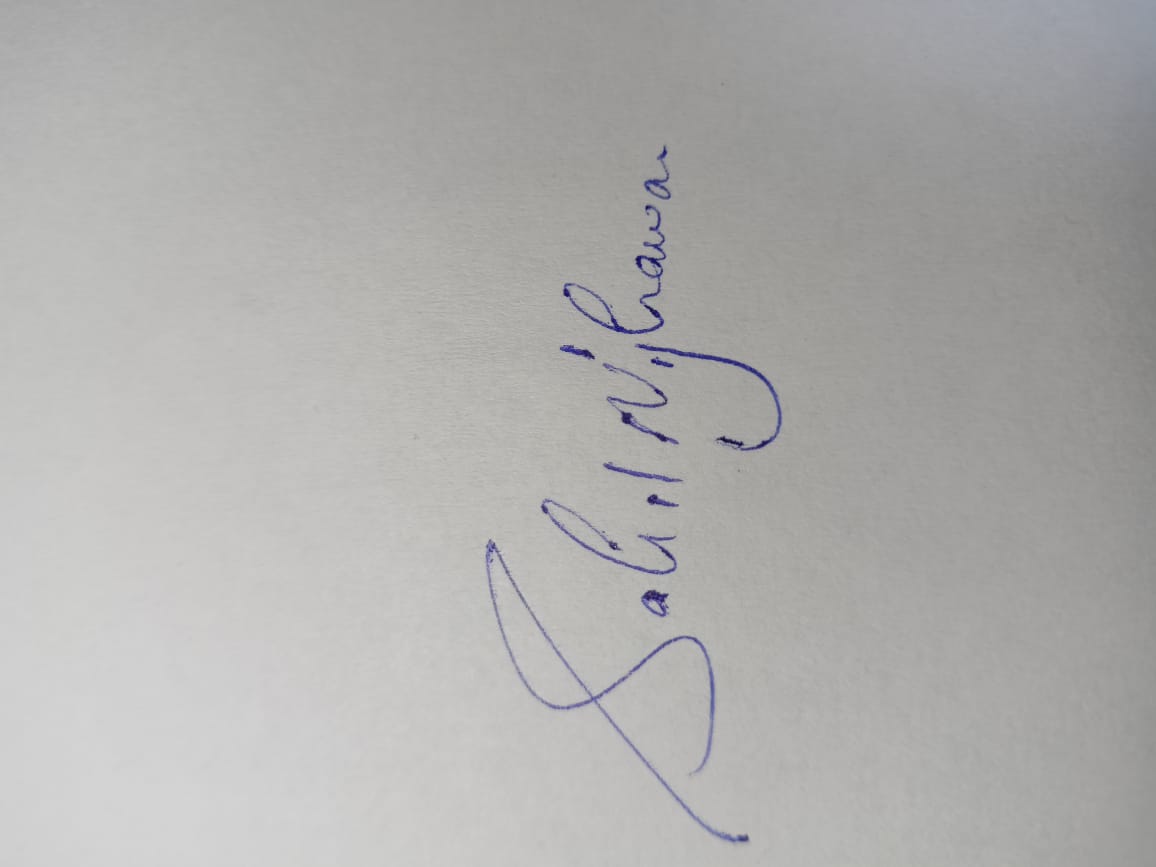 Sahil Nijhawan